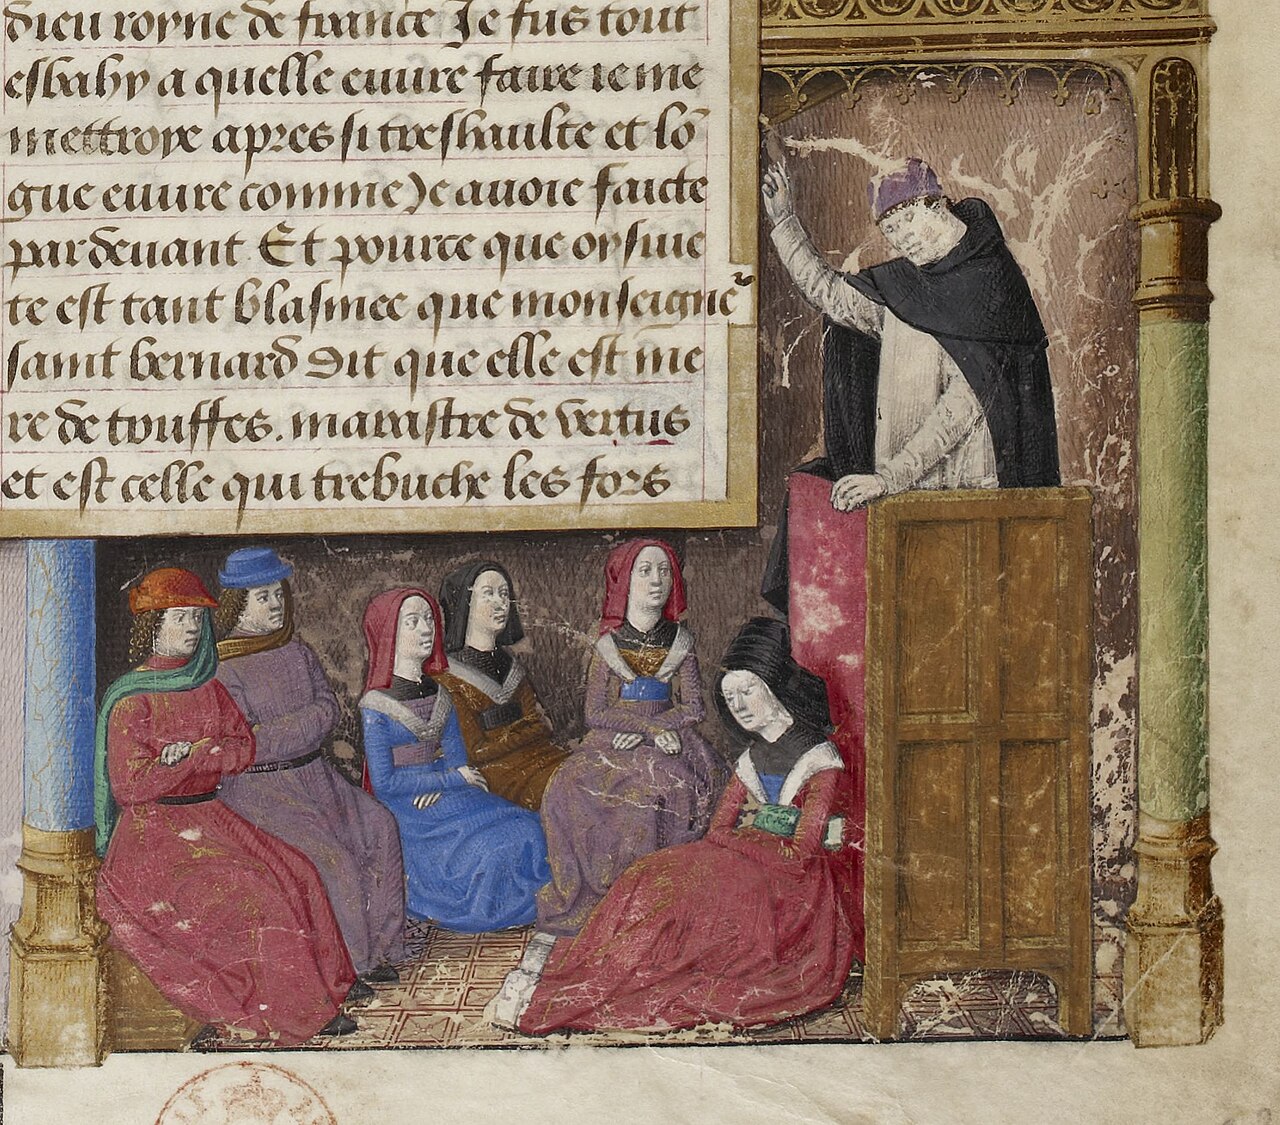 dieu royne de france Je fus tout
esbahy a quelle euure faire ie me
mettroye apres si treshaulte et lō
gue euure comme Je auoie faicte
par deuant. Et pource que oysiue
te est tant blasmee que monseigneͬ
saint bernard dit que elle est me
re de trouffes. marastre de vertus
et est celle qui trebuche les fors